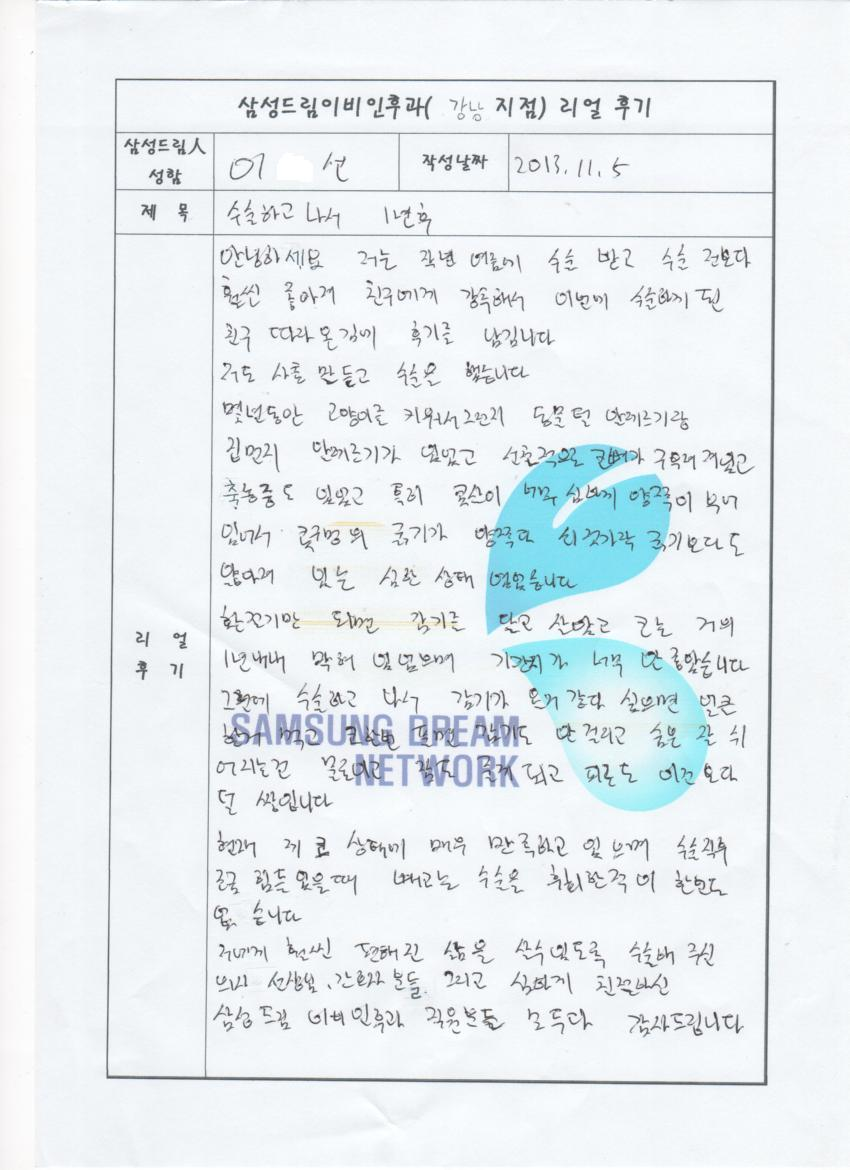 삼성드림이비인후과( 강남 지점) 리얼 후기
삼성드림人 성함
이 선
작성날짜
2013. 11. 5
제 목
수술하고 나서 1년후
리 얼 후 기
안녕하세요 저는 작년 여름에 수술 받고 수술 전보다
훨씬 좋아져 친구에게 강추해서 이번에 수술하게 된
친구 따라온김에 후기를 남깁니다
저도 사촌 말듣고 수술을 했습니다
몇년동안 고양이를 키워서그런지 동물 털 알레르기랑
집먼지 알레르기가 있었고 선천적으로 코뼈가 구부러져있고
축농증도 있었고 특히 콧살이 너무 심하게 양쪽이 부어
있어서 콧구멍의 굵기가 양쪽다 쇠젓가락 굵기보다도
얇아져 있는 심한 상태 였었습니다
환절기만 되면 감기를 달고 살았고 코는 거의
1년내내 막혀 있었으며 기관지가 너무 안 좋았습니다
그런데 수술하고 나서 감기가 온거 같다 싶으면 얼큰
한거 먹고 코한번 풀면 감기도 안 걸리고 숨을 잘 쉬
어지는건 물론이고 잠도 잘 되고 피로도 이전보다
덜 쌓입니다
현재 제 코 상태에 매우 만족하고 있으며 수술직후
조금 힘들었을때 빼고는 수술을 후회한적이 한번도
없습니다
저에게 훨씬 편해진 삶을 살수있도록 수술해 주신
의사 선생님, 간호사분들, 그리고 심하게 친절하신
삼성드림 이비인후과 직원분들 모두다 감사드립니다
SAMSUNG DREAM
NETWORK